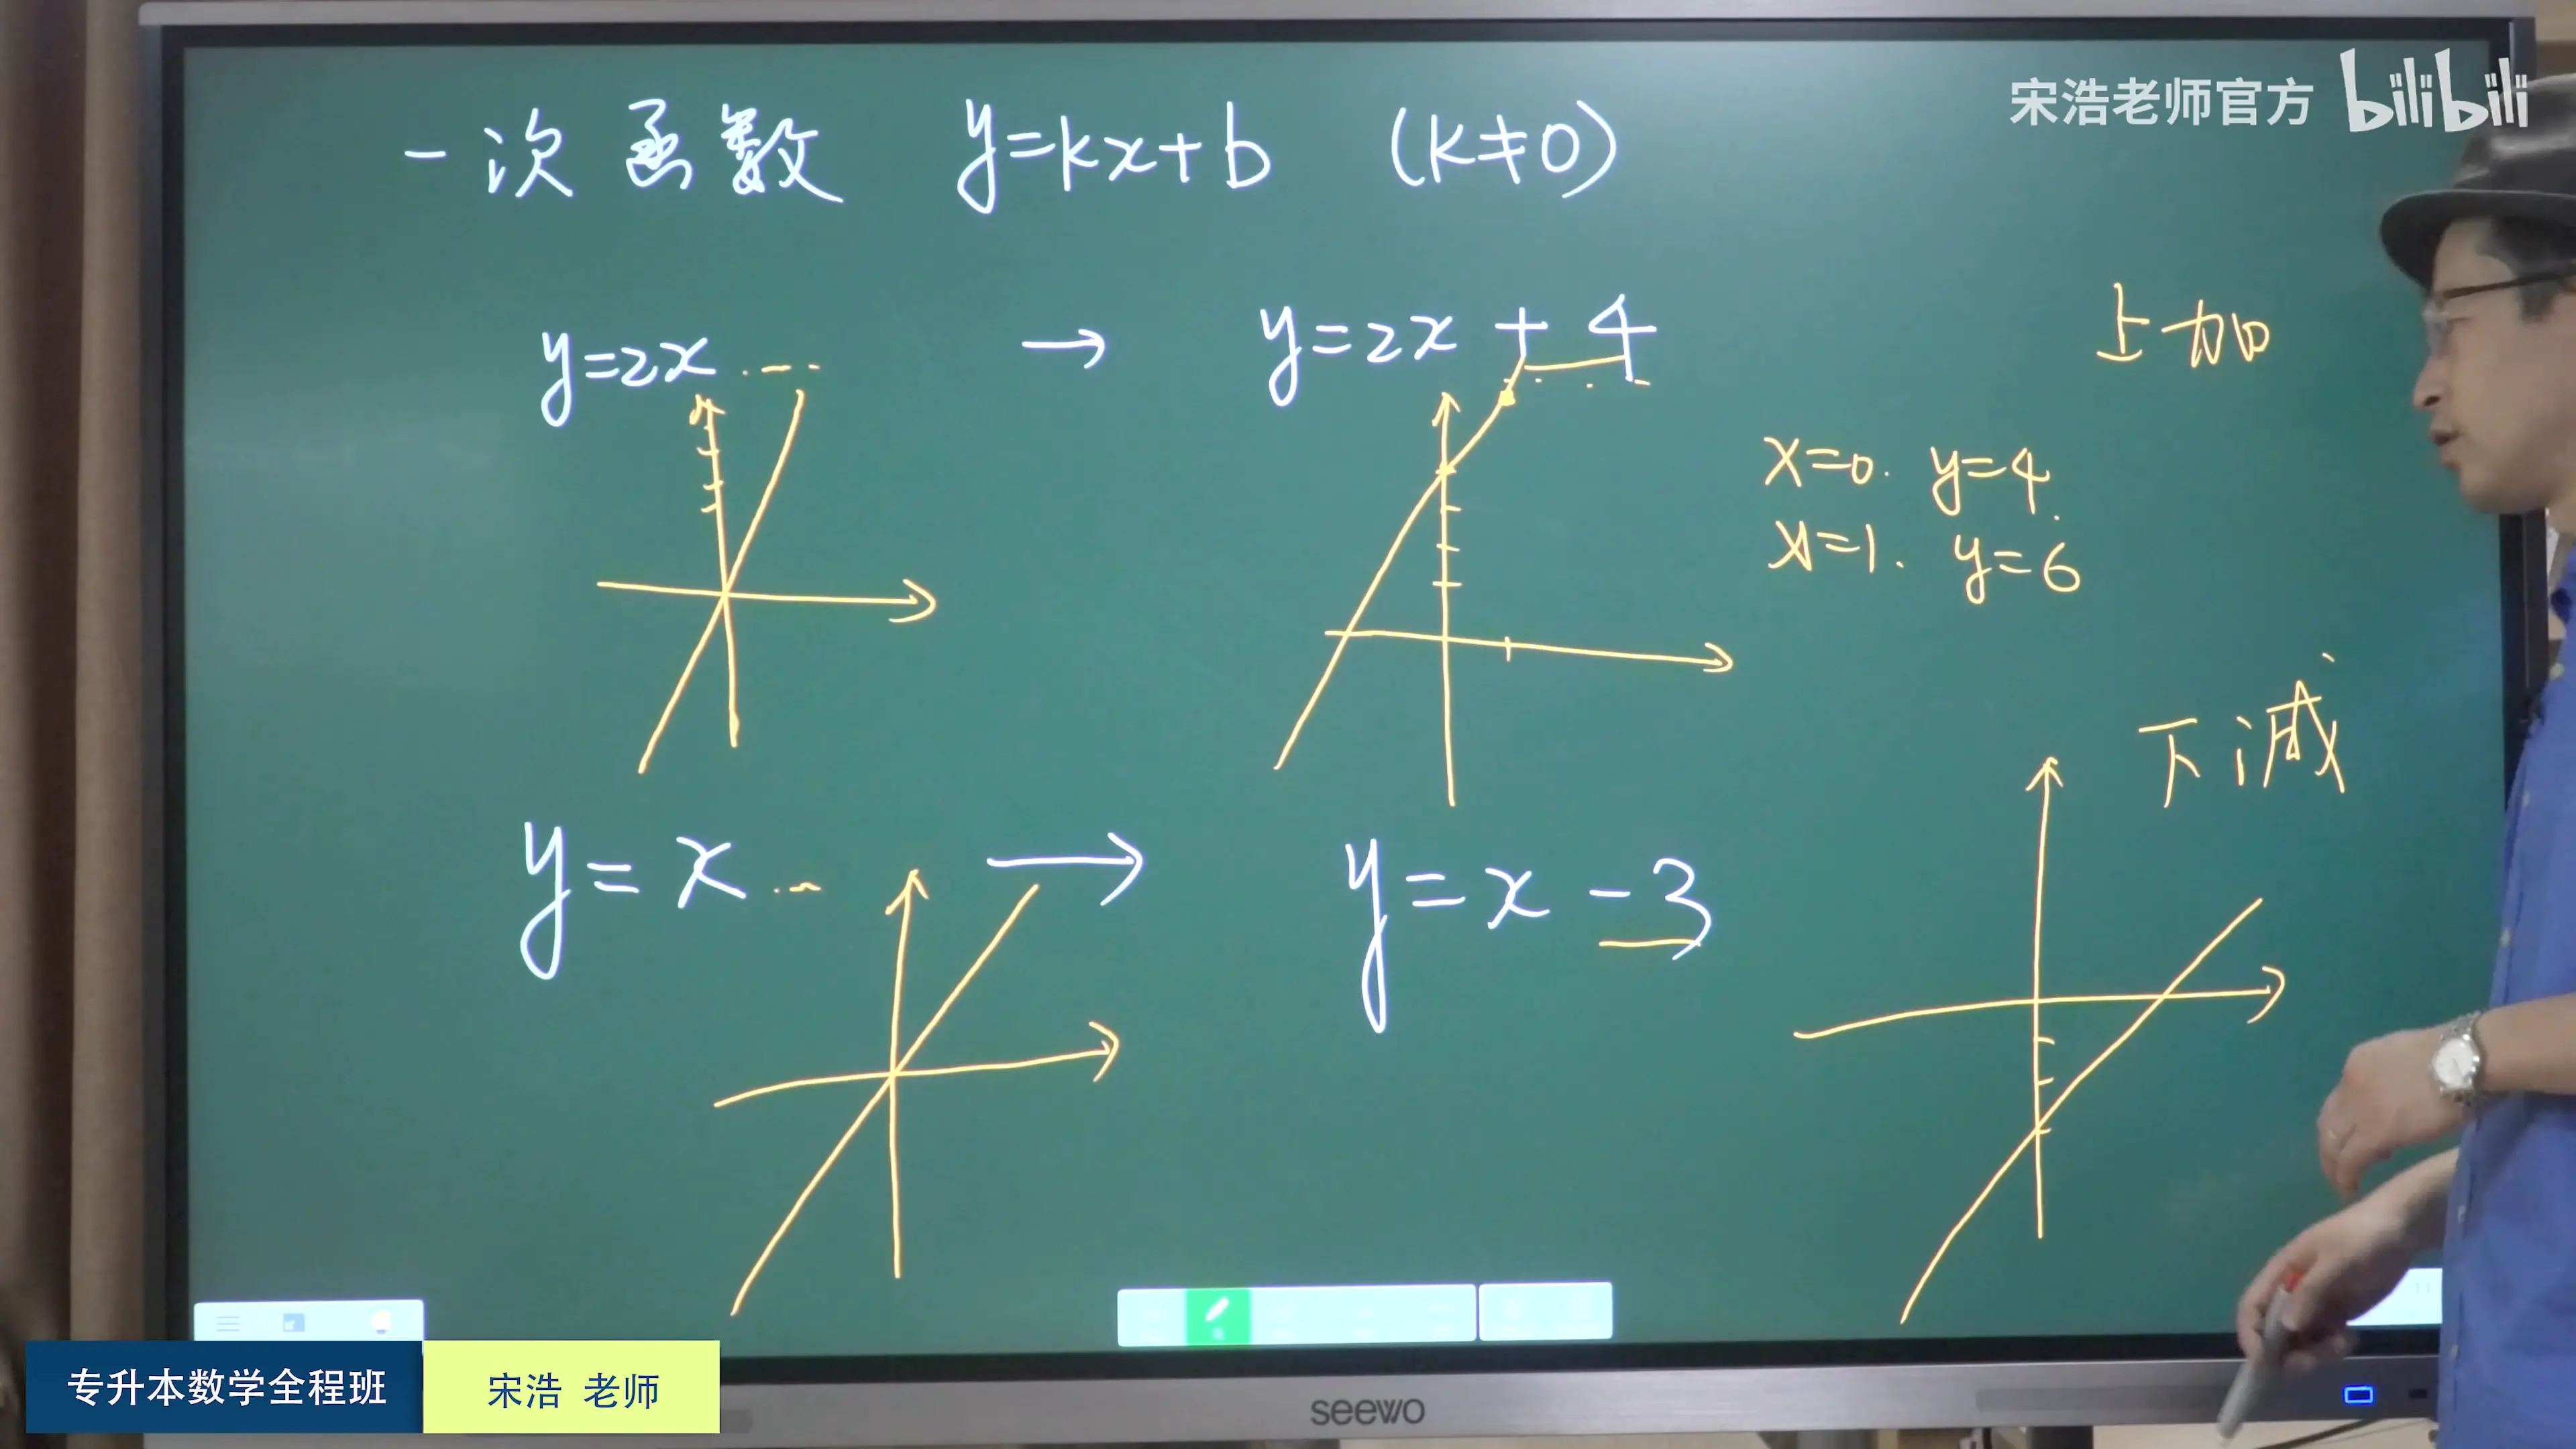 宋浩老师官方 bilibili
一次函数 y=kx+b (k≠0)
y=2x → y=2x+4
上加
x=0. y=4.
x=1. y=6
下减
y=x → y=x-3
专升本数学全程班 宋浩 老师
seewo